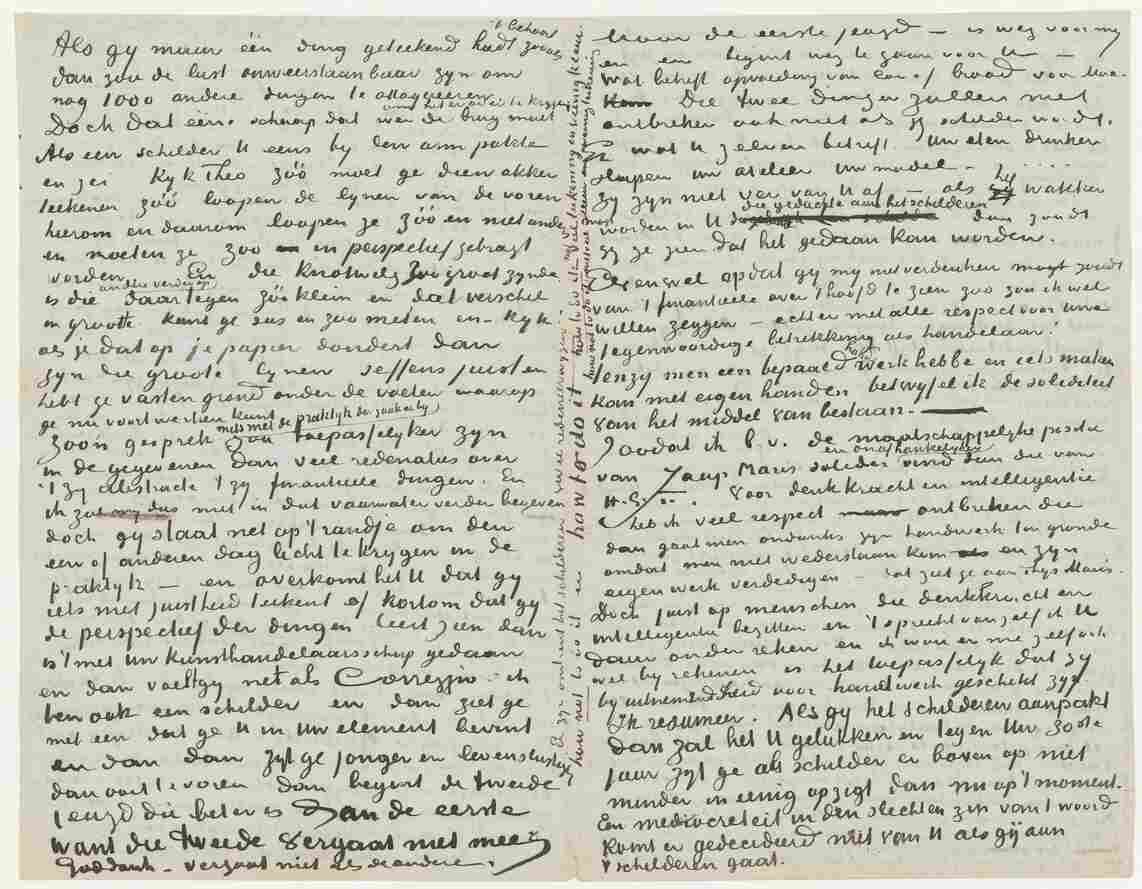 Als gy maar één ding geteekend hadt zooals 't behoort
dan zou de lust onweerstaanbaar zyn om
nog 1000 andere dingen te attaqueeren
Doch dat ééne schaap dat over de brug moet om het er over te krygen
Als een schilder U eens by den arm pakte
en zei Kyk Theo zóó moet ge dien akker
teekenen zóó loopen de lynen van de voren
hierom en daarom loopen ze zóó en niet anders
en moeten ze zoo in perspectief gebragt
worden. En die knotwilg zoo groot zynde
is die andre verderop daartegen zóó klein en dat verschil
in grootte kunt ge zus en zoo meten en – kyk
als je dat op je papier dondert dan
zyn die groote lynen seffens juist en
hebt ge vasten grond onder de voeten waarop
ge nu voortwerken kunt
Zoo'n gesprek zou mits met de praktijk der zaak er by toepasselyker zyn
in de gegeven dan veel redenaties over
't zy abstracte 't zy financieele dingen. En
ik zal my dus niet in dat vaarwater verder begeven
doch gy staat net op 't randje om den
een of anderen dag licht te krygen in de
praktyk – en overkomt het U dat gy
iets met juistheid teekent of kortom dat gy
de perspectief der dingen leert zien dan
is 't met uw kunsthandelaarsschap gedaan
en dan voelt gy net als Correggio – ik
ben ook een schilder en dan ziet ge
met een dat ge U in uw element bevint
en dan dan zyt ge jonger en levenslustiger
dan ooit te voren dan begint de tweede
jeugd die beter is dan de eerste
want die tweede vergaat niet meer
Goddank – vergaat niet als de andere.
how not to do it en how to do it
how to do it
Maar de eerste jeugd – is weg voor my
en en begint weg te gaan voor U –
Wat betreft opvoeding van een of brood voor Ma
Die twee dingen zullen niet
ontbreken ook niet als gy schilder wordt.
En wat U zelven betreft uw eten drinken
slapen uw atelier uw model –
Zy zyn niet ver van U af – als hy wakker
worden in U die gedachte aan het schilderen dan zoudt
gy ze zien dat het gedaan kan worden.
Evenwel opdat gy my niet verdenken moogt zoudt
van 't financieele over 't hoofd te zien zoo zou ik wel
willen zeggen – echter met alle respect voor uwe
tegenwoordige betrekking als handelaar:
tenzy men een bepaald werk hebbe en iets maken
kan met eigen handen betwyfel ik de soliditeit
van het middel van bestaan.
Zoodat ik b.v. de maatschappelyke positie
van Jaap Maris solieder en onafhankelyker vind dan die van
H.G.T. Voor denkkracht en intelligentie
heb ik veel respect ontbreken die
dan gaat men ondanks zyn handwerk ten gronde
omdat men niet wederstaan kon en zyn
eigen werk verdedigen – dat ziet ge aan Thys Maris.
Doch juist op menschen die denkkracht en
intelligentie bezitten en 't spreekt van zelf ik U
daar onder reken en ik wou er me zelf ook
wel by rekenen is het toepasselyk dat zy
by uitnemendheid voor handwerk geschikt zyn
Ik resumeer. Als gy het schilderen aanpakt
dan zal het U gelukken en tegen Uw 30ste
jaar zyt ge als schilder er boven op niet
minder in eenig opzigt dan nu op 't moment.
En mediocreteit in den slechten zin van 't woord
komt er gedecideerd niet van U als gij aan
't schilderen gaat.